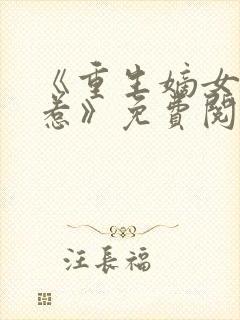 《重生嫡女
惹》免費閱
汪長福